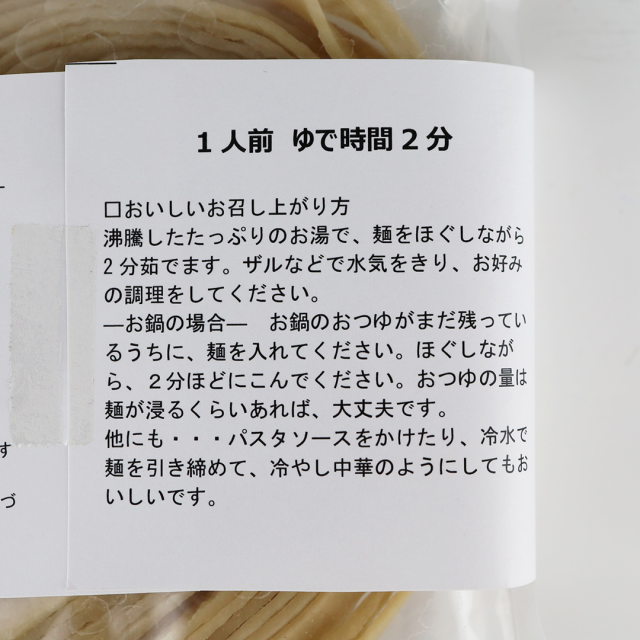 1人前 ゆで時間2分
□おいしいお召し上がり方
沸騰したたっぷりのお湯で、麺をほぐしながら
2分茹でます。ザルなどで水気をきり、お好み
の調理をしてください。
―お鍋の場合― お鍋のおつゆがまだ残ってい
るうちに、麺を入れてください。ほぐしなが
ら、2分ほどにこんでください。おつゆの量は
麺が浸るくらいあれば、大丈夫です。
他にも・・・パスタソースをかけたり、冷水で
麺を引き締めて、冷やし中華のようにしてもお
いしいです。
す
づ